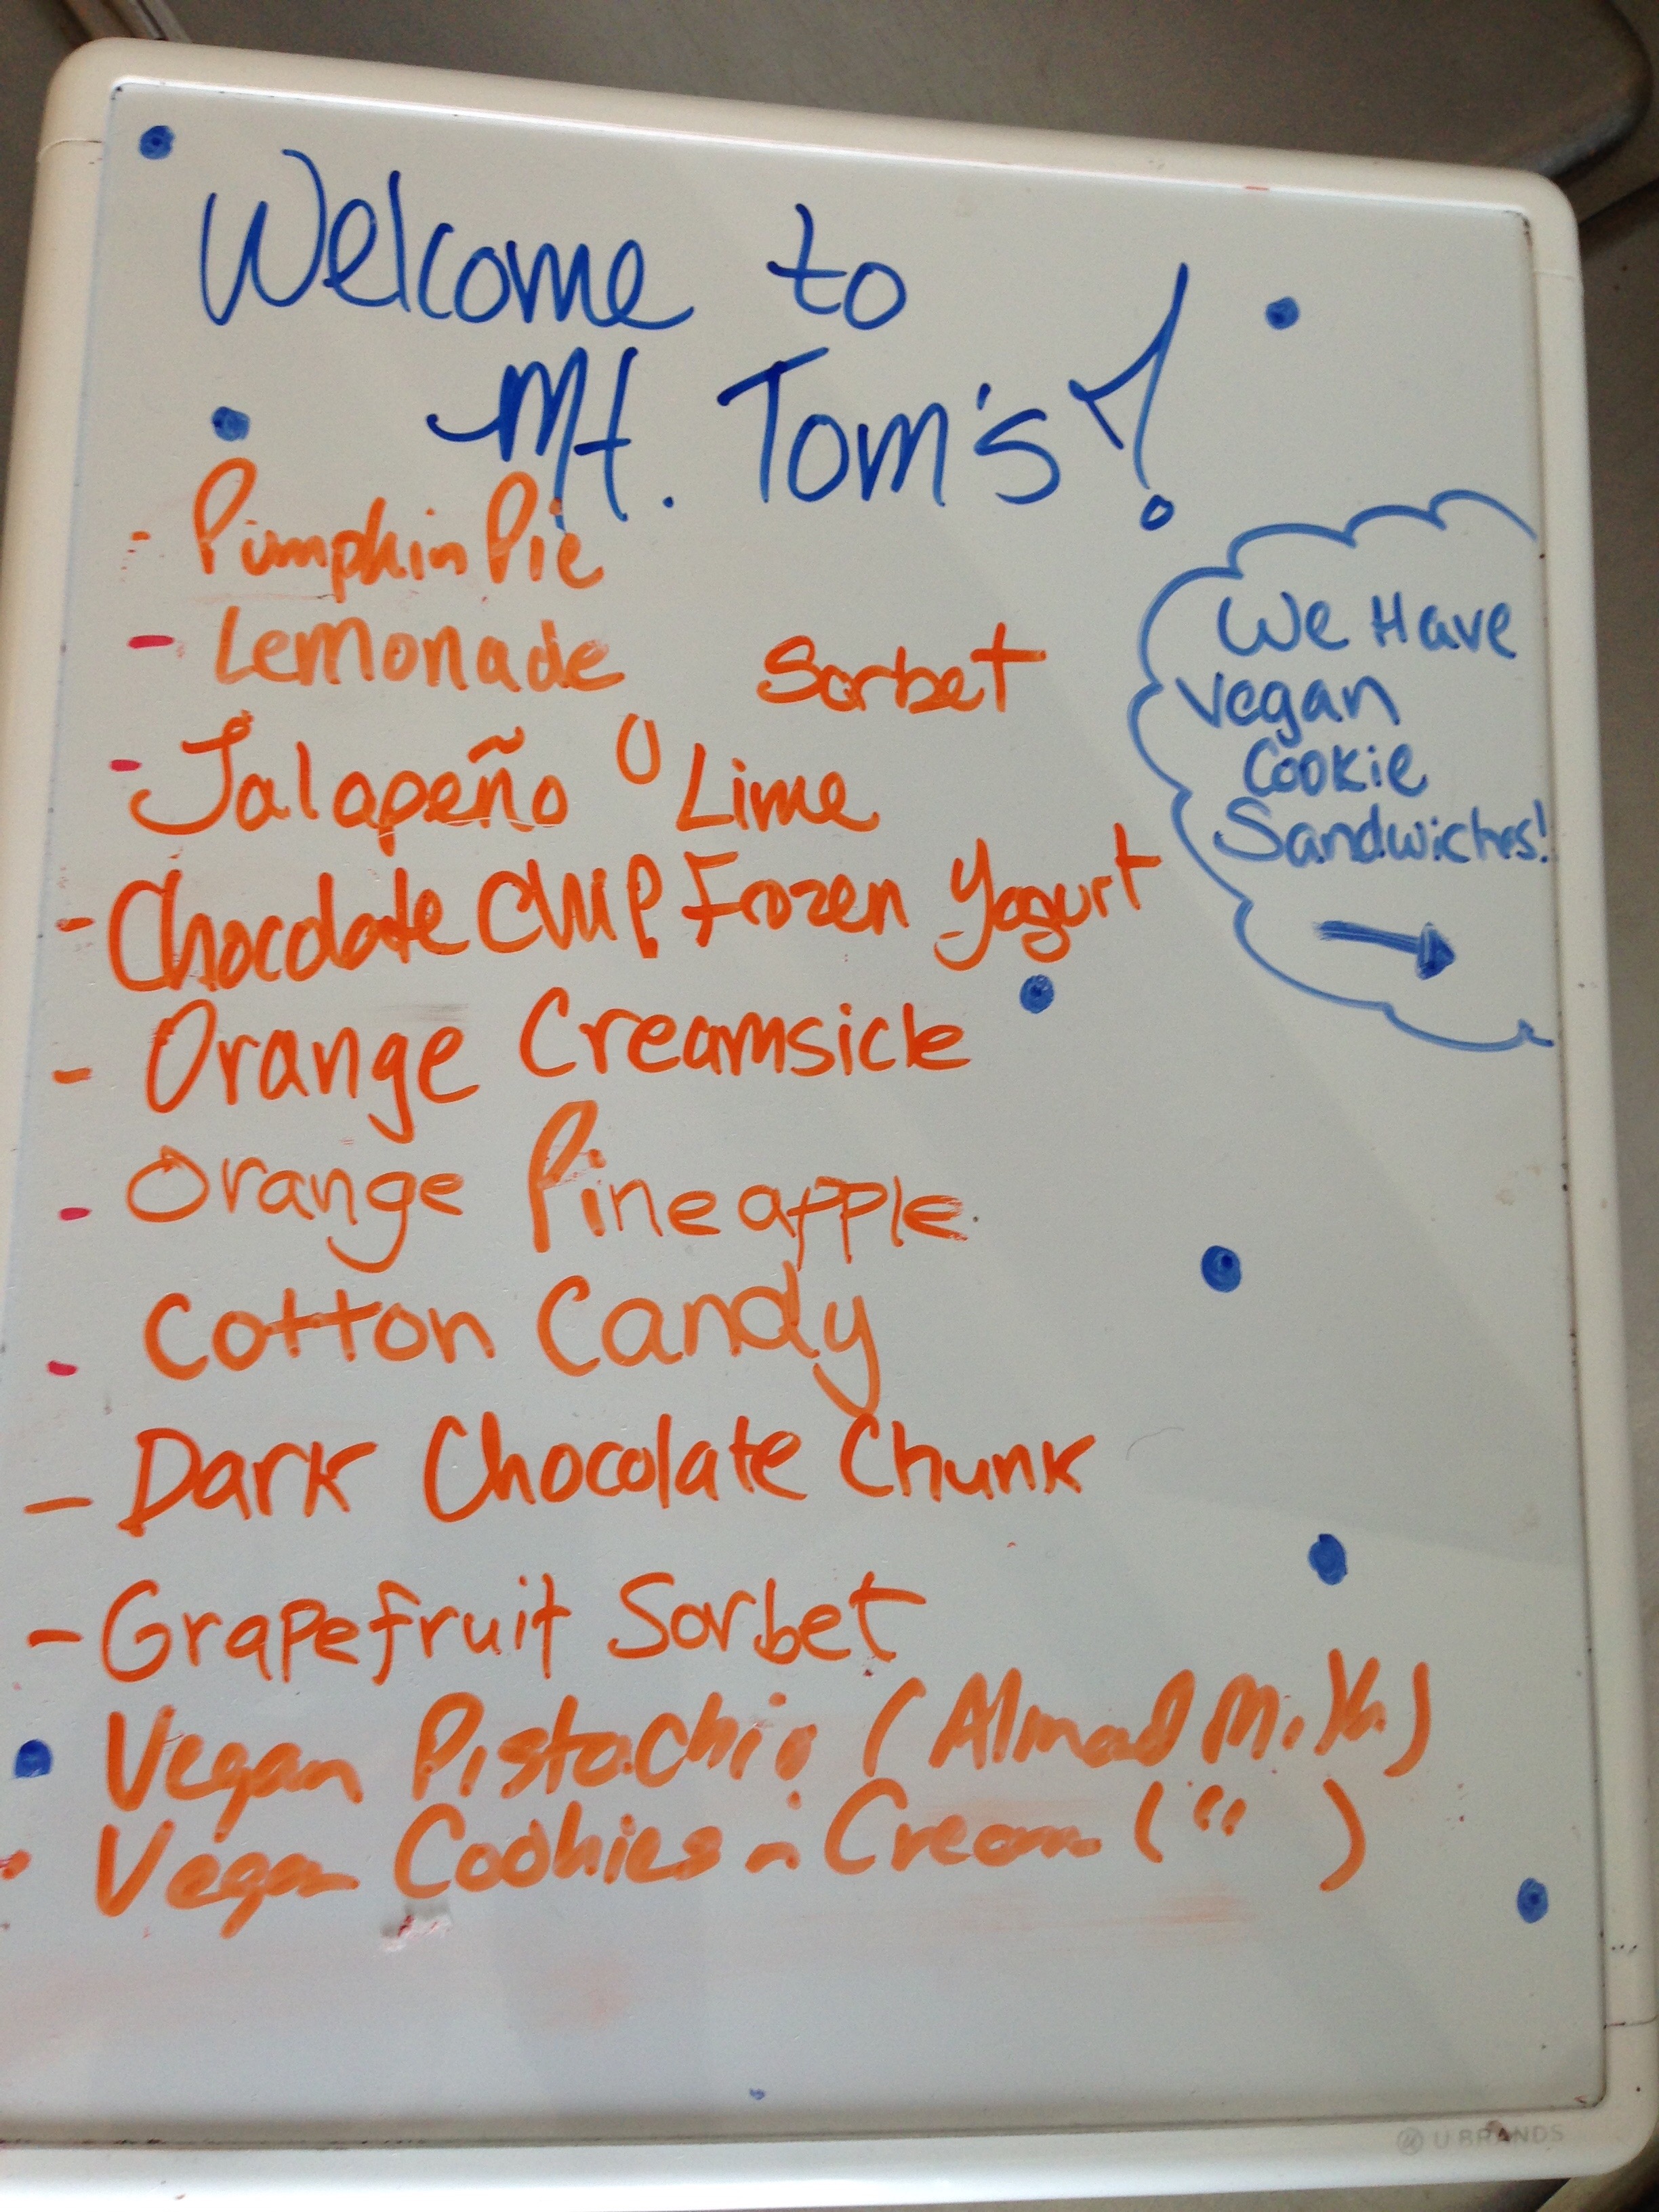 Welcome to
Mt. Tom's!
- Pumpkin Pie
- Lemonade Sorbet
- Jalapeño Lime
- Chocolate Chip Frozen Yogurt
- Orange Creamsicle
- Orange Pineapple
- Cotton Candy
- Dark Chocolate Chunk
- Grapefruit Sorbet
Vegan Pistachio (Almond Milk)
- Vegan Cookies-n-Cream (" )
We Have
Vegan
Cookie
Sandwiches!
U BRANDS